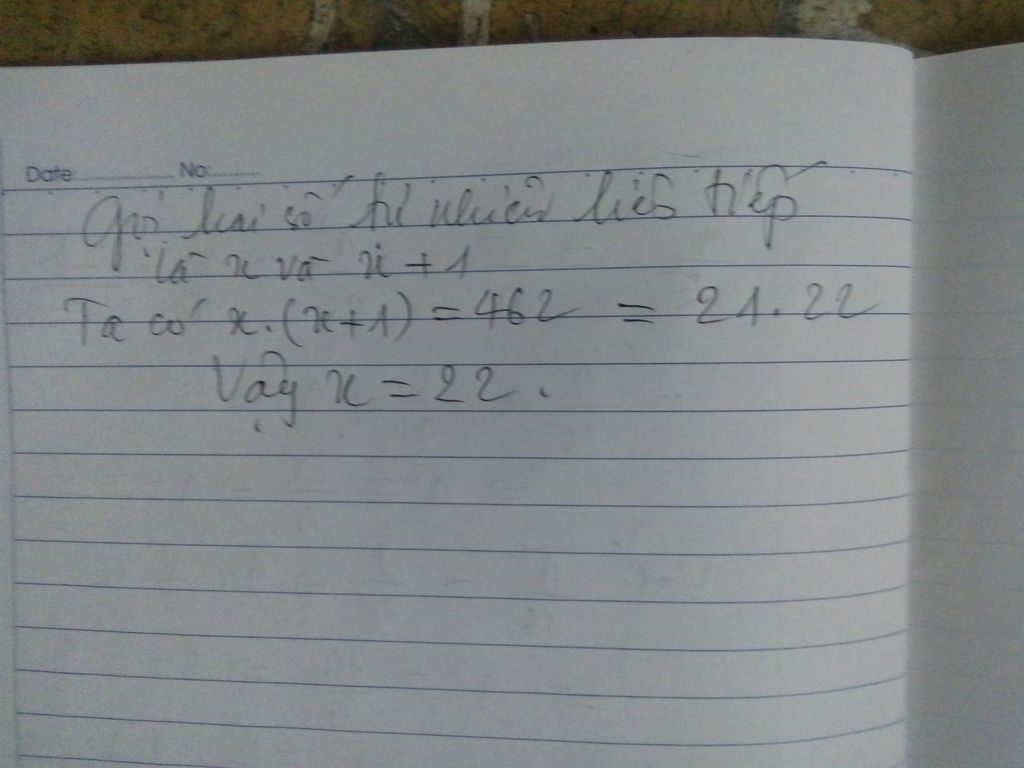 Date: No:
Gọi hai số tự nhiên liên tiếp
là x và x + 1
Ta có x.(x+1) = 462 = 21.22
Vậy x = 22.